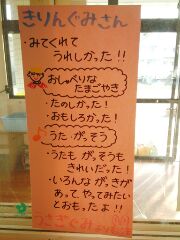 きりんぐみさん
・みてくれて
うれしかった!!
おしゃべりな
たまごやき
・たのしかった!
・おもしろかった!
うた・がっそう
・うたも がっそうも
きれいだった!
・いろんな がっきが
あって、やってみたい
とおもったよ!!
うさぎぐみより